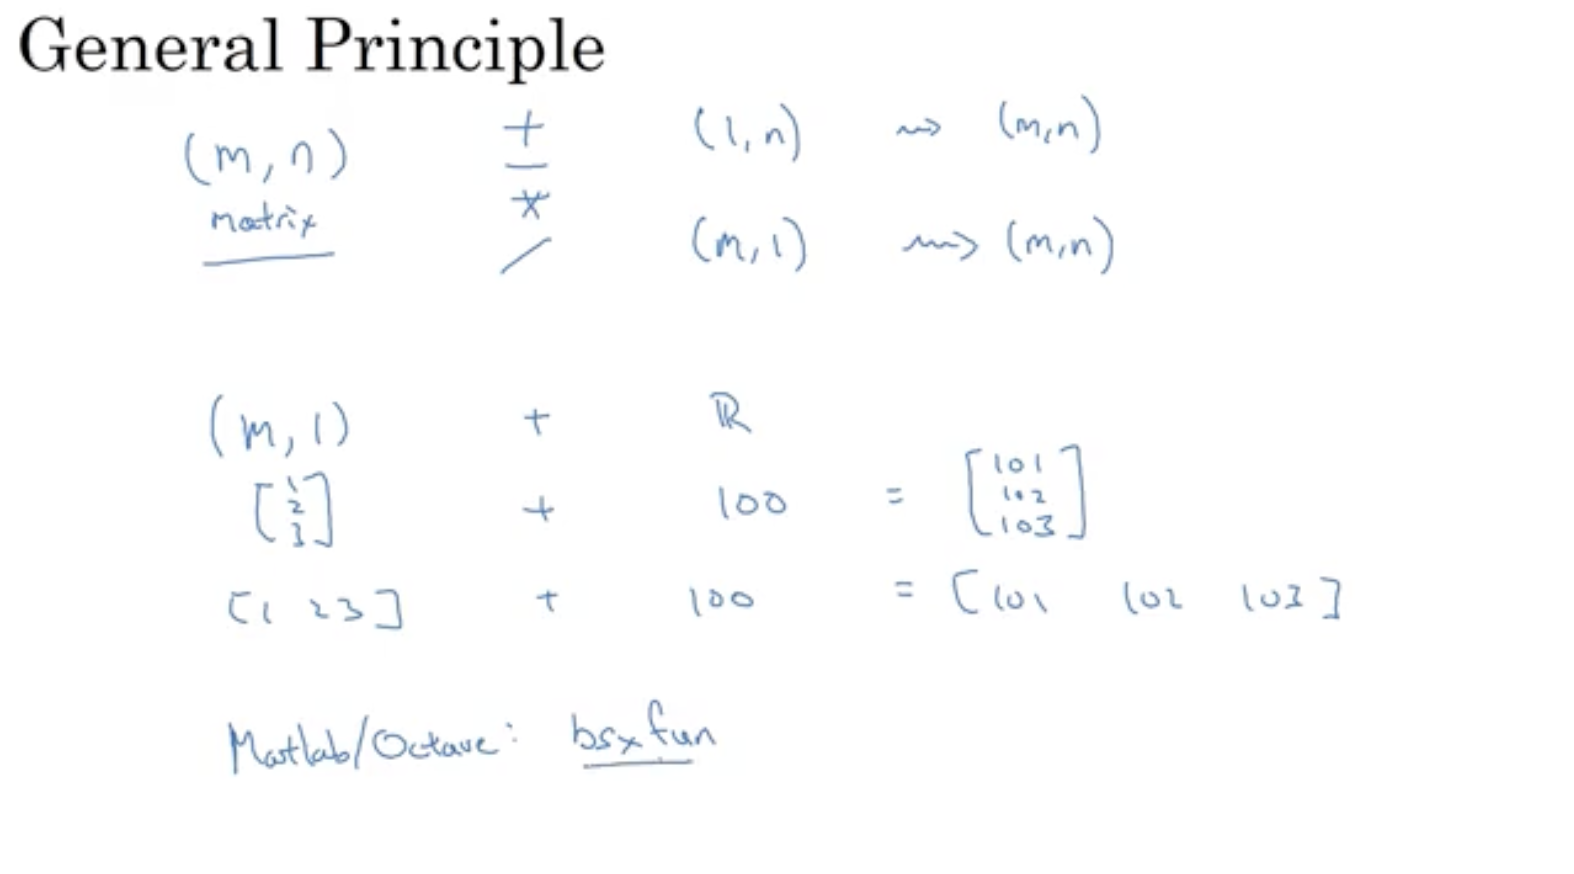 General Principle
(m, n) + (1, n) ⇝ (m,n)
matrix − * / (m, 1) ⇝ (m,n)
(m, 1) + ℝ
[1 2 3] + 100 = [101 102 103]
[1 2 3] + 100 = [101 102 103]
Matlab/Octave: bsxfun